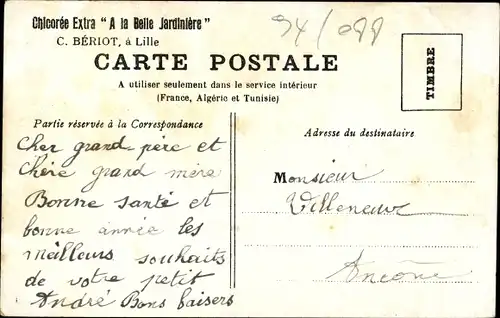 Chicorée Extra "A la Belle Jardinière"
C. BÉRIOT, à Lille
94/088
CARTE POSTALE
A utiliser seulement dans le service intérieur
(France, Algérie et Tunisie)
TIMBRE
Partie réservée à la Correspondance
Cher grand-père et
Chère grand mère
Bonne santé et
bonne année les
meilleurs souhaits
de votre petit
André Bons baisers
Adresse du destinataire
Monsieur
Villeneuve
Ancône